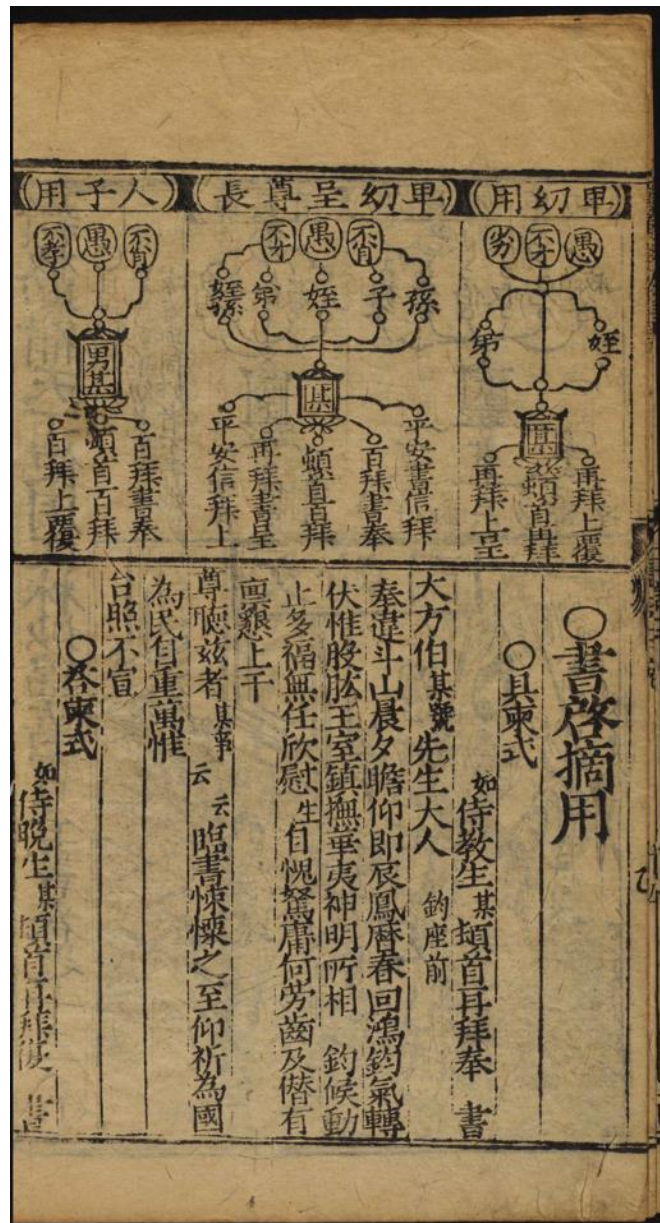 卑幼用
愚
不才
劣
姪
弟
某
再拜上覆
頓首再拜
再拜上呈
卑幼呈尊長
不肖
愚
不才
孫
子
姪
弟
姪孫
某
平安書信拜
百拜書奉
頓首百拜
再拜書呈
平安信拜上
人子用
不肖
愚
不孝
男某
百拜書奉
頓首百拜
百拜上覆
○書啓摘用
○具柬式
如侍教生某頓首再拜奉 書
大方伯某號先生大人 鈞座前
奉違斗山晨夕瞻仰即辰鳳曆春回鴻鈞氣轉
伏惟股肱王室鎮撫華夷神明所相 鈞候動
止多福無任欣慰生自愧駑庸何劳齒及僣有
亶懇上干
尊聴兹者某事云云臨書悚慄之至仰祈為國
為民自重萬惟
台照不宣
○答柬式
如侍晚生某頓首再拜復 書